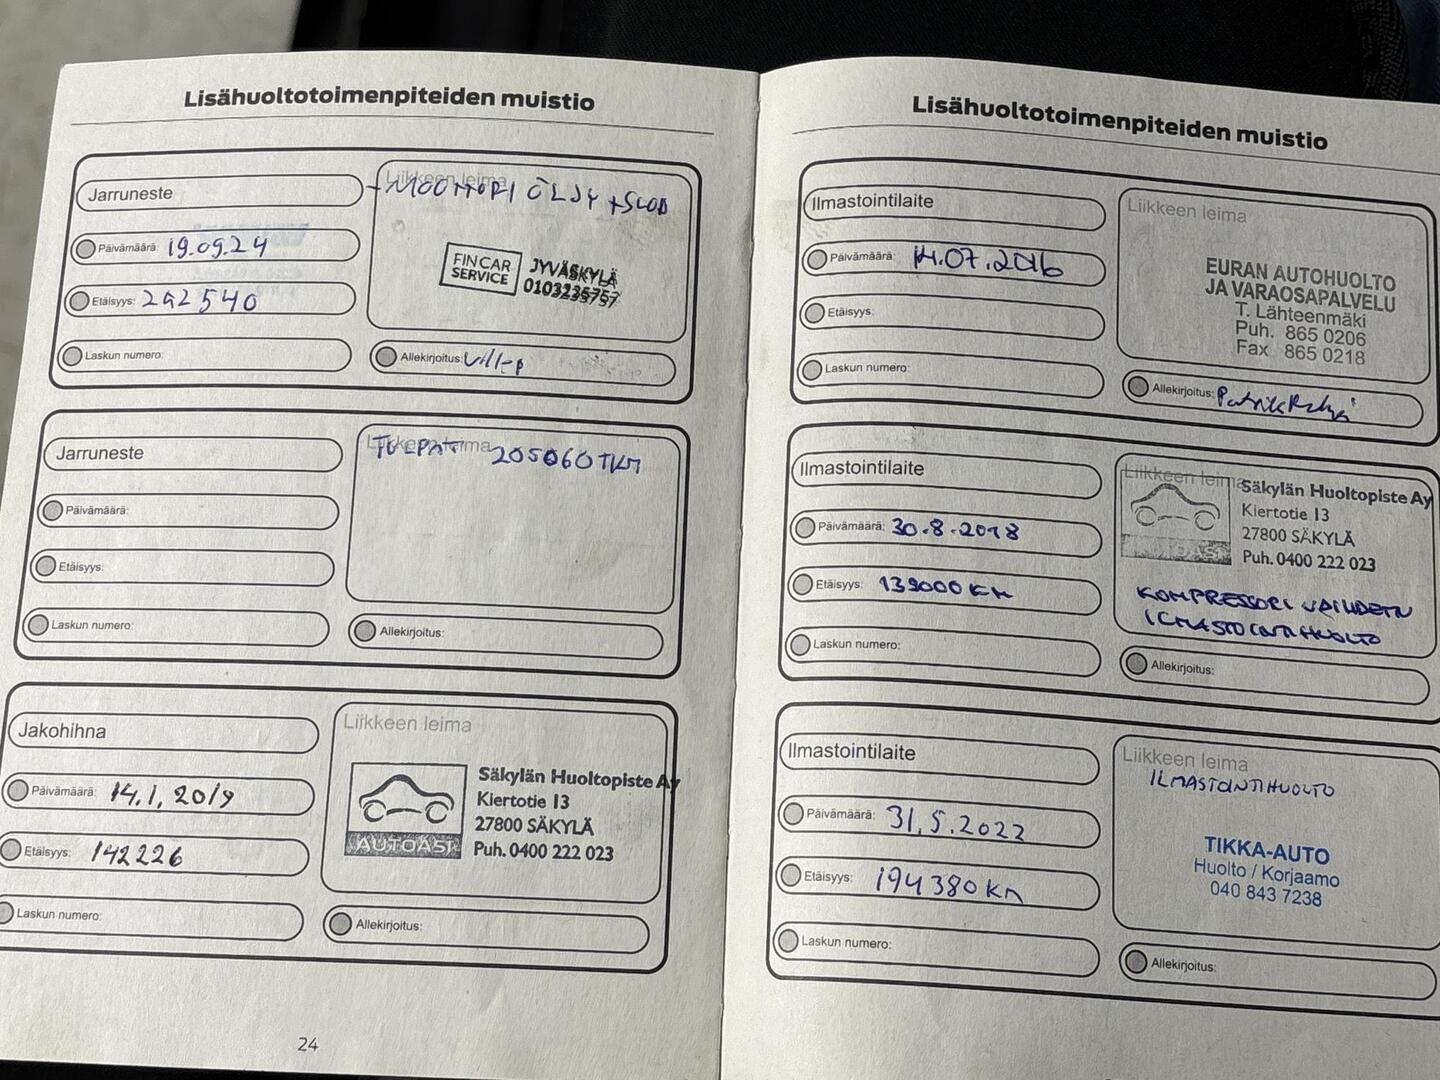 Lisähuoltotoimenpiteiden muistio
Jarruneste
Päivämäärä: 19.09.24
Etäisyys: 292540
Laskun numero:
Liikkeen leima
+ MOOTTORI ÖLJY +SUOD
FINCAR
SERVICE
JYVÄSKYLÄ
0103235757
Allekirjoitus:
Jarruneste
Päivämäärä:
Etäisyys:
Laskun numero:
Liikkeen leima
TULPAT 205060TKM
Allekirjoitus:
Jakohihna
Päivämäärä: 14.1.2019
Etäisyys: 142226
Laskun numero:
Liikkeen leima
AUTOASI
Säkylän Huoltopiste Ay
Kiertotie 13
27800 SÄKYLÄ
Puh. 0400 222 023
Allekirjoitus:
24
Lisähuoltotoimenpiteiden muistio
Ilmastointilaite
Päivämäärä: 14.07.2016
Etäisyys:
Laskun numero:
Liikkeen leima
EURAN AUTOHUOLTO
JA VARAOSAPALVELU
T. Lähteenmäki
Puh. 865 0206
Fax 865 0218
Allekirjoitus:
Ilmastointilaite
Päivämäärä: 30.8.2018
Etäisyys: 139000 KM
Laskun numero:
Liikkeen leima
AUTOASI
Säkylän Huoltopiste Ay
Kiertotie 13
27800 SÄKYLÄ
Puh. 0400 222 023
KOMPRESSORI VAIHDETTU
ILMASTOINTIHUOLTO
Allekirjoitus:
Ilmastointilaite
Päivämäärä: 31.5.2022
Etäisyys: 194380 KM
Laskun numero:
Liikkeen leima
ILMASTOINTIHUOLTO
TIKKA-AUTO
Huolto / Korjaamo
040 843 7238
Allekirjoitus: